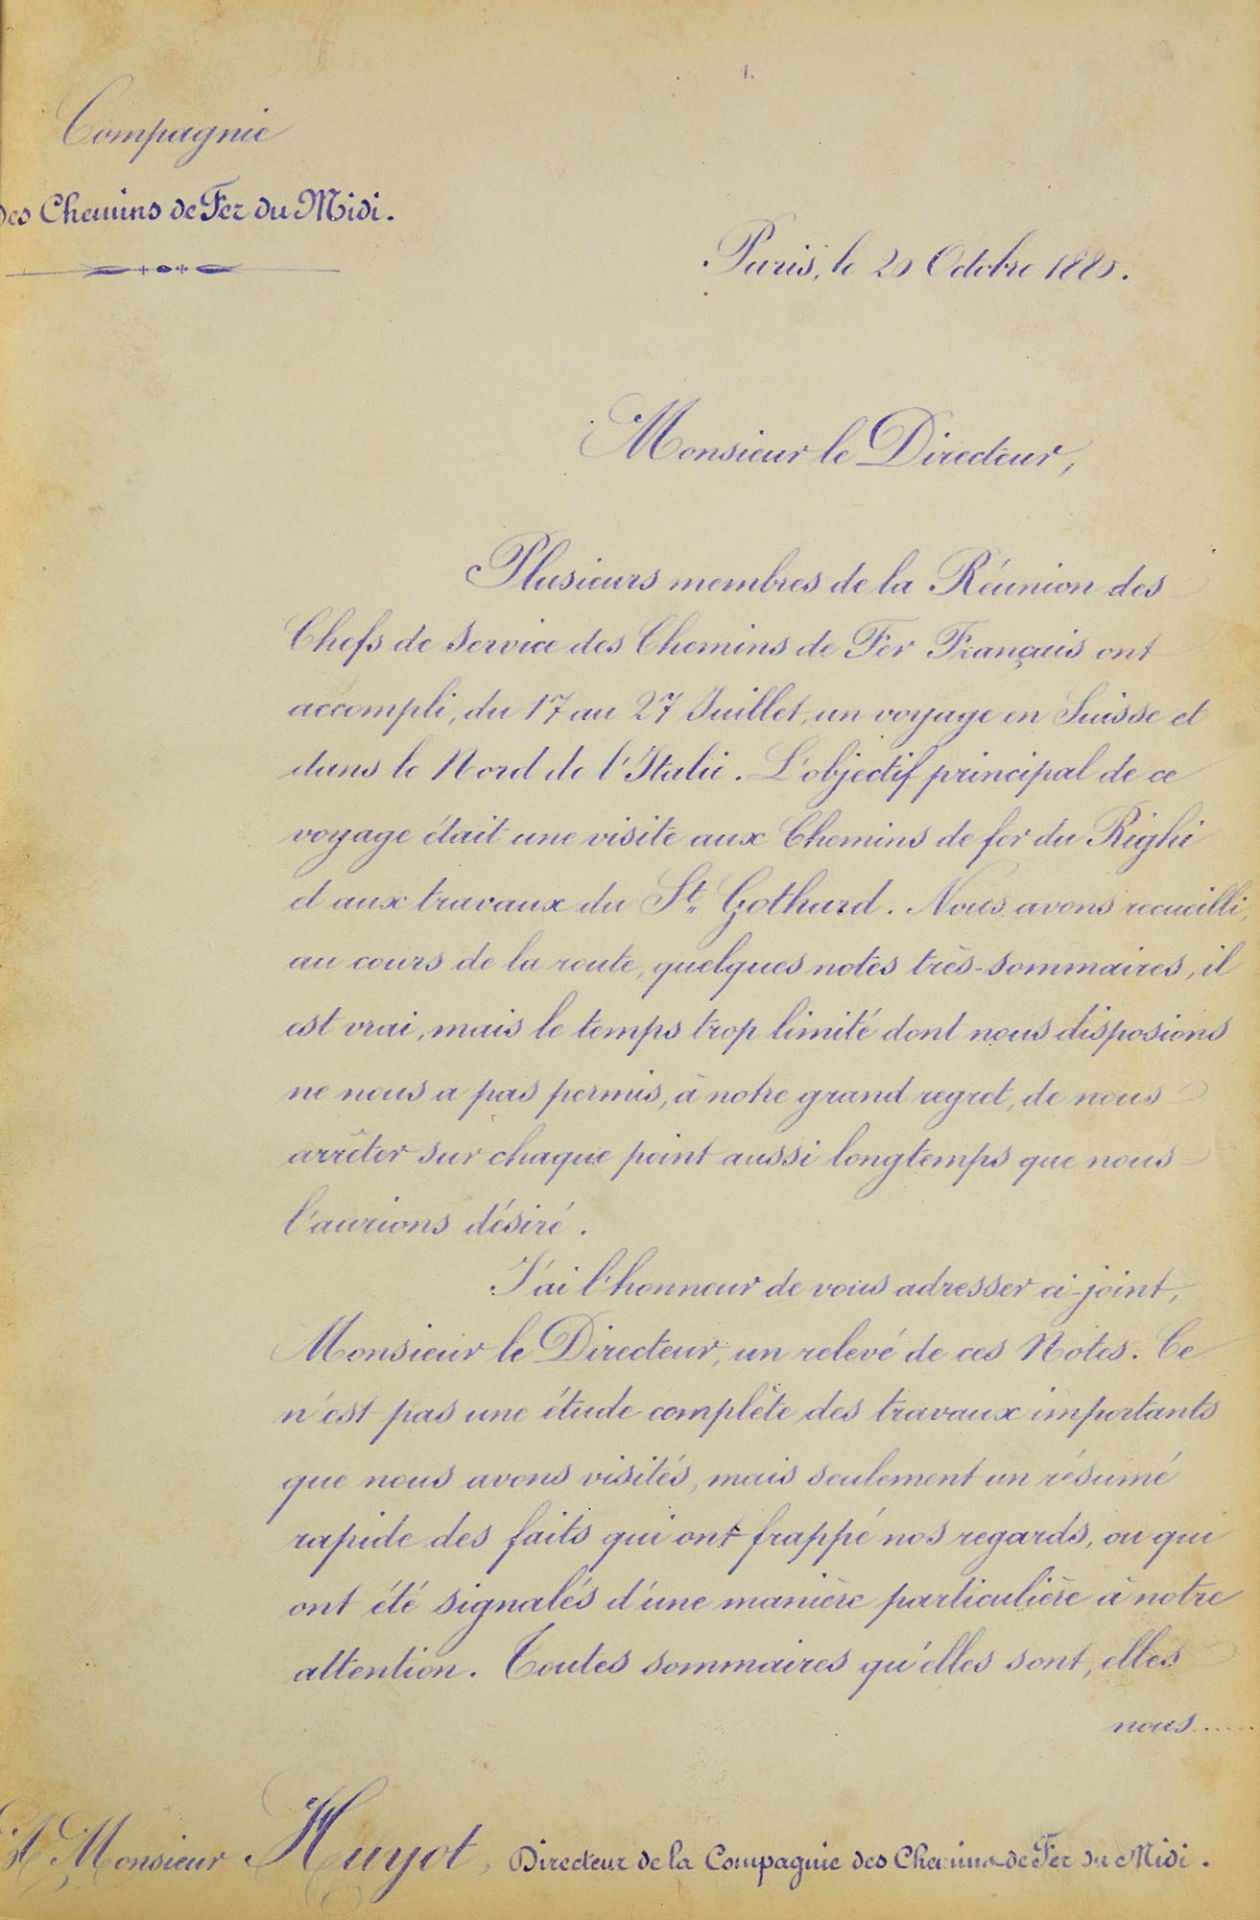 1.
Compagnie
des Chemins de Fer du Midi.
Paris, le 20 Octobre 1880.
Monsieur le Directeur,
Plusieurs membres de la Réunion des
Chefs de Service des Chemins de Fer Français ont
accompli, du 17 au 27 Juillet, un voyage en Suisse et
dans le Nord de l'Italie. L'objectif principal de ce
voyage était une visite aux Chemins de fer du Righi
et aux travaux du St. Gothard. Nous avons recueilli,
au cours de la route, quelques notes très-sommaires, il
est vrai, mais le temps trop limité dont nous disposions
ne nous a pas permis, à notre grand regret, de nous
arrêter sur chaque point aussi longtemps que nous
l'aurions désiré.
J'ai l'honneur de vous adresser ci-joint,
Monsieur le Directeur, un relevé de ces Notes. Ce
n'est pas une étude complète des travaux importants
que nous avons visités, mais seulement un résumé
rapide des faits qui ont frappé nos regards, ou qui
ont été signalés d'une manière particulière à notre
attention. Toutes sommaires qu'elles sont, elles
nous.....
A Monsieur Huyot, Directeur de la Compagnie des Chemins de Fer du Midi.